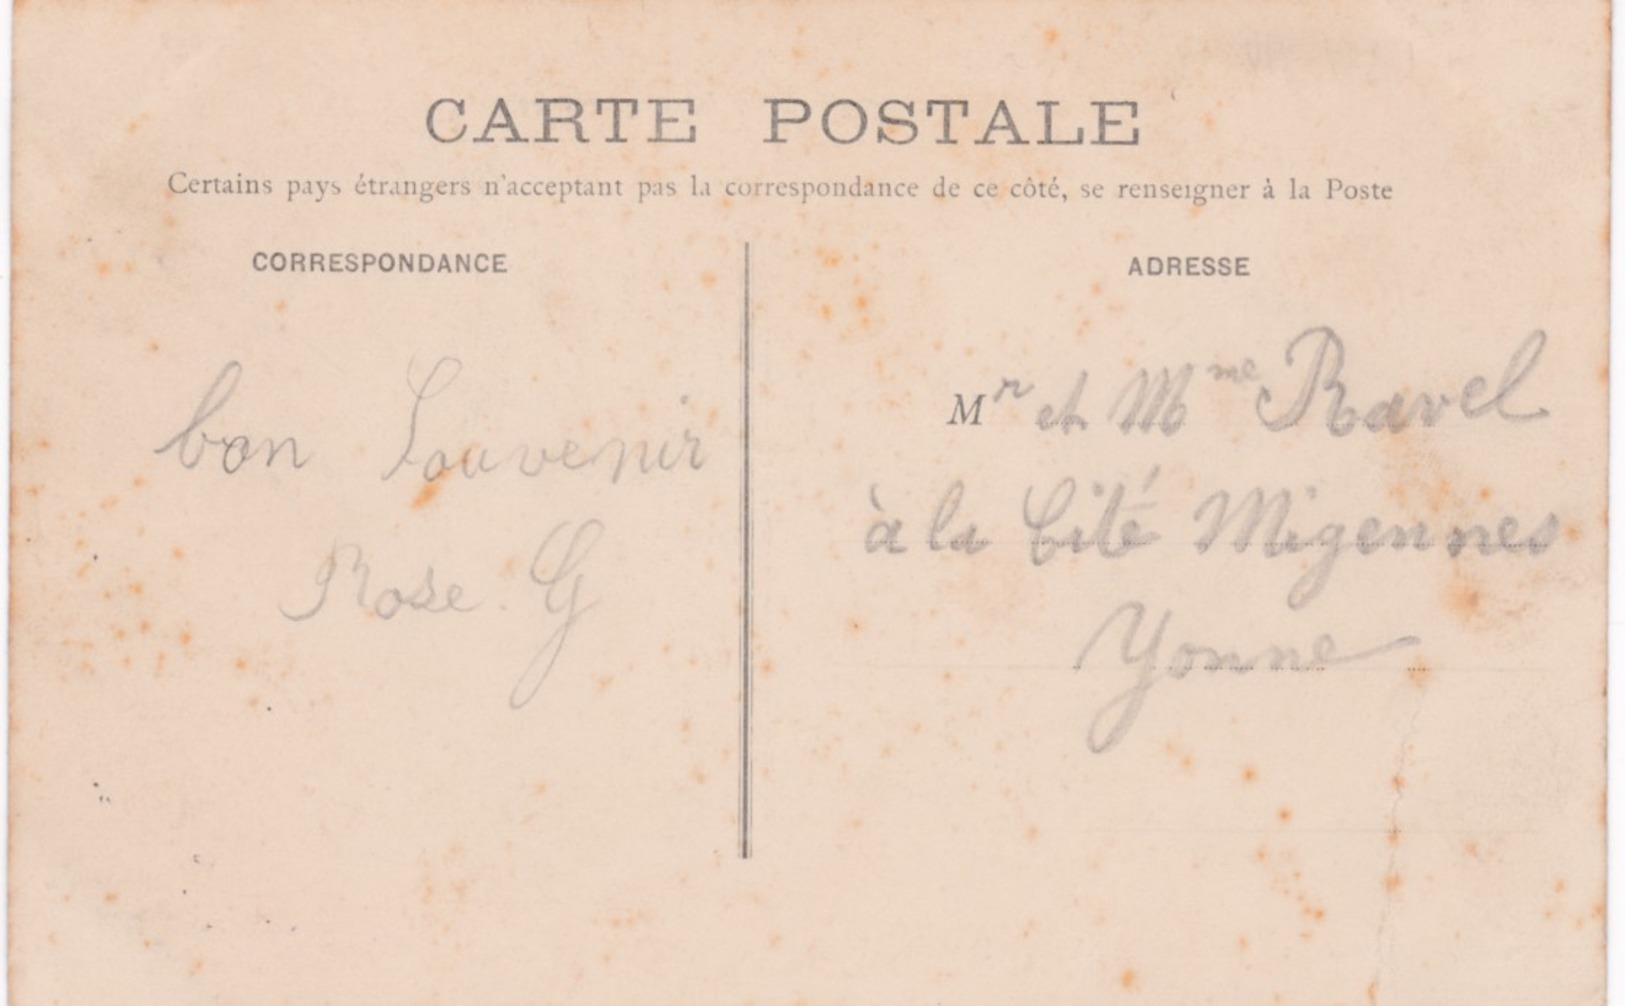 CARTE POSTALE
Certains pays étrangers n'acceptant pas la correspondance de ce côté, se renseigner à la Poste
CORRESPONDANCE
bon Souvenir
Rose. G
ADRESSE
Mr et Mme Ravel
à la Cité Migennes
Yonne